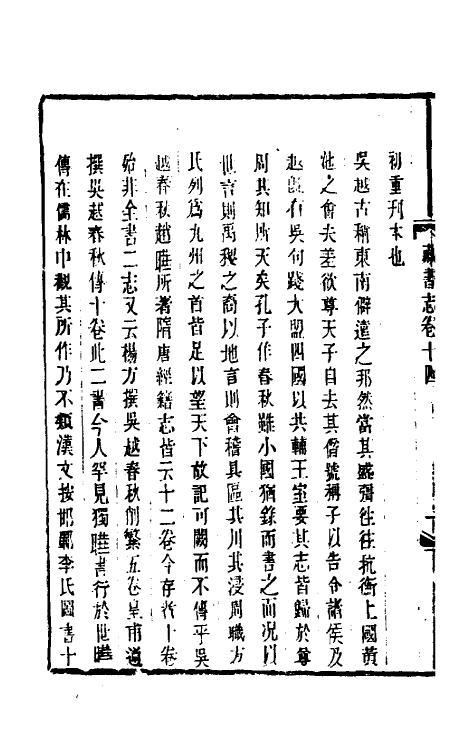 藏書志卷十四
初重刊本也
吳越古稱東南僻遠之邦然當其盛彊往往抗衡上國黃
池之會夫差欲尊天子自去其僭號稱子以告令諸侯及
越旣有吳句踐大盟四國以共輔王室要其志皆歸於尊
周其知所天矣孔子作春秋雖小國猶錄而書之而況以
世言則禹稷之裔以地言則會稽具區其川其浸周職方
氏列爲九州之首皆足以望天下故記可闕而不傳乎吳
越春秋趙曄所著隋唐經籍志皆云十二卷今存者十卷
殆非全書二志又云楊方撰吳越春秋削繁五卷皇甫遵
撰吳越春秋傳十卷此二書今人罕見獨曄書行於世曄
傳在儒林中觀其所作乃不類漢文按邯鄲李氏圖書十